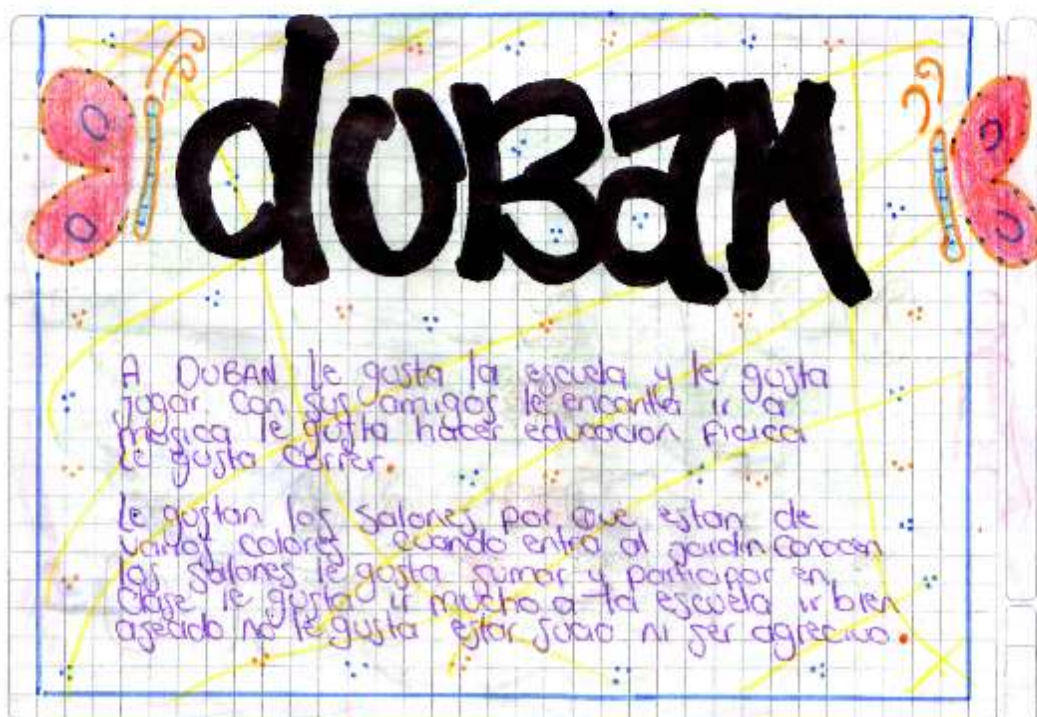 duBan
A DUBAN le gusta la escuela y le gusta
jugar con sus amigos le encanta ir a
mesica le gusta hacer educacion ficica
le gusta correr.
le gustan los salones por que estan de
varios colores cuando entro al jardin conocen
los salones le gusta sumar y participar en
clase le gusta ir mucho a la escuela ir bien
aseado no le gusta estar sucio ni ser agrecivo.